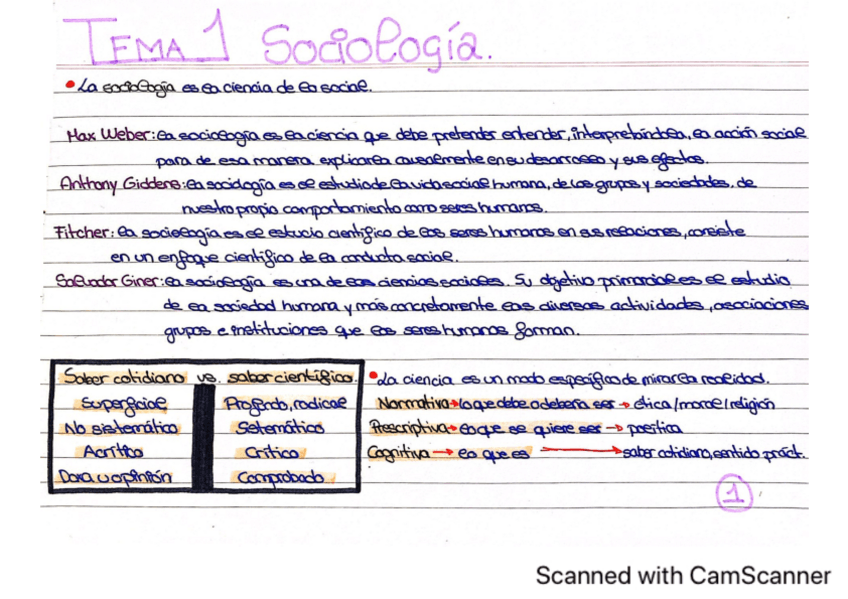 TEMA 1 Sociología.
• La sociología es la ciencia de lo social.
Max Weber: la sociología es la ciencia que debe pretender entender, interpretándola, la acción social
para de esa manera explicarla causalmente en su desarrollo y sus efectos.
Anthony Giddens: la sociología es el estudio de la vida social humana, de los grupos y sociedades, de
nuestro propio comportamiento como seres humanos.
Fitcher: la sociología es el estudio científico de los seres humanos en sus relaciones, consiste
en un enfoque científico de la conducta social.
Salvador Giner: la sociología es una de las ciencias sociales. Su objetivo primordial es el estudio
de la sociedad humana y más concretamente las diversas actividades, asociaciones
grupos e instituciones que los seres humanos forman.
Saber cotidiano vs. saber científico.
Superficial Profundo, radical
No sistemático Sistemático
Acrítico Crítico
Doxa u opinión Comprobado
• La ciencia es un modo específico de mirar la realidad.
Normativa → lo que debe o debería ser → ética/moral/religión
Prescriptiva → lo que se quiere ser → política
Cognitiva → lo que es → saber cotidiano, sentido práct.
1
Scanned with CamScanner